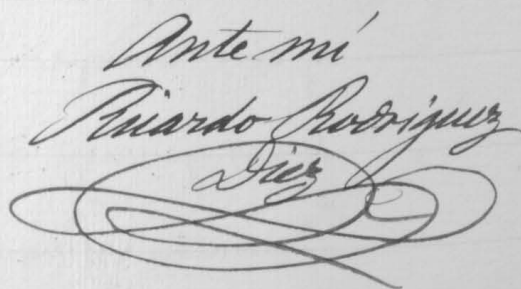 Ante mí
Ricardo Rodriguez
Diez